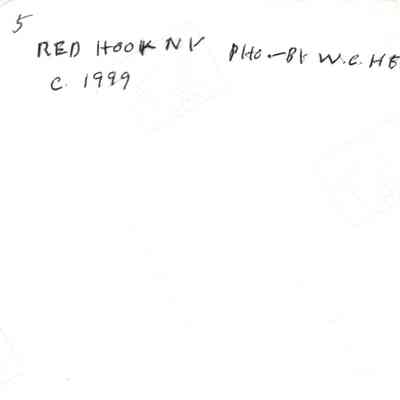 5
RED HOOK NY PHO.-BY W.C. HE
C. 1999